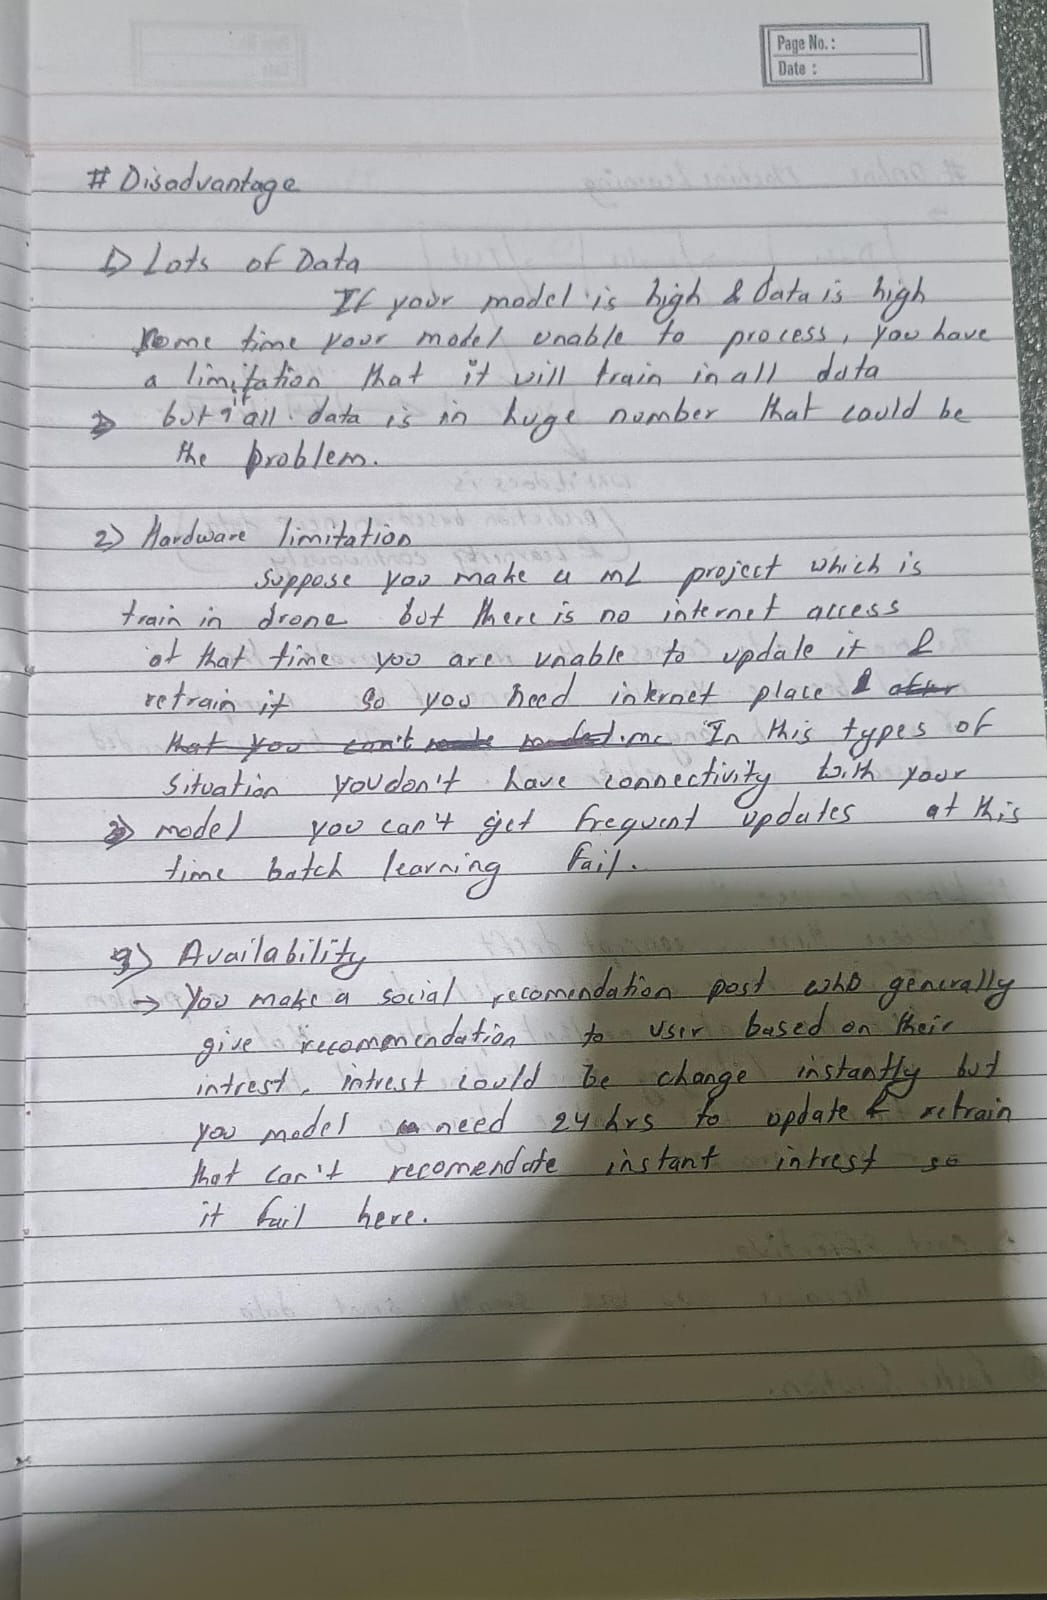 Page No. :
Date :
# Disadvantage
1) Lots of Data
If your model is high & data is high
some time your model unable to process, you have
a limitation that it will train in all data
but if all data is in huge number that could be
the problem.
2) Hardware limitation
Suppose you make a ML project which is
train in drone but there is no internet access
at that time you are unable to update it &
retrain it so you need internet place & after
that you can't In this types of
situation you don't have connectivity with your
model you can't get frequent updates at this
time batch learning fail.
3) Availability
→ You make a social recomendation post who generally
give recommendation to user based on their
intrest. intrest could be change instantly but
you model need 24 hrs to update & retrain
that can't recomendate instant intrest so
it fail here.